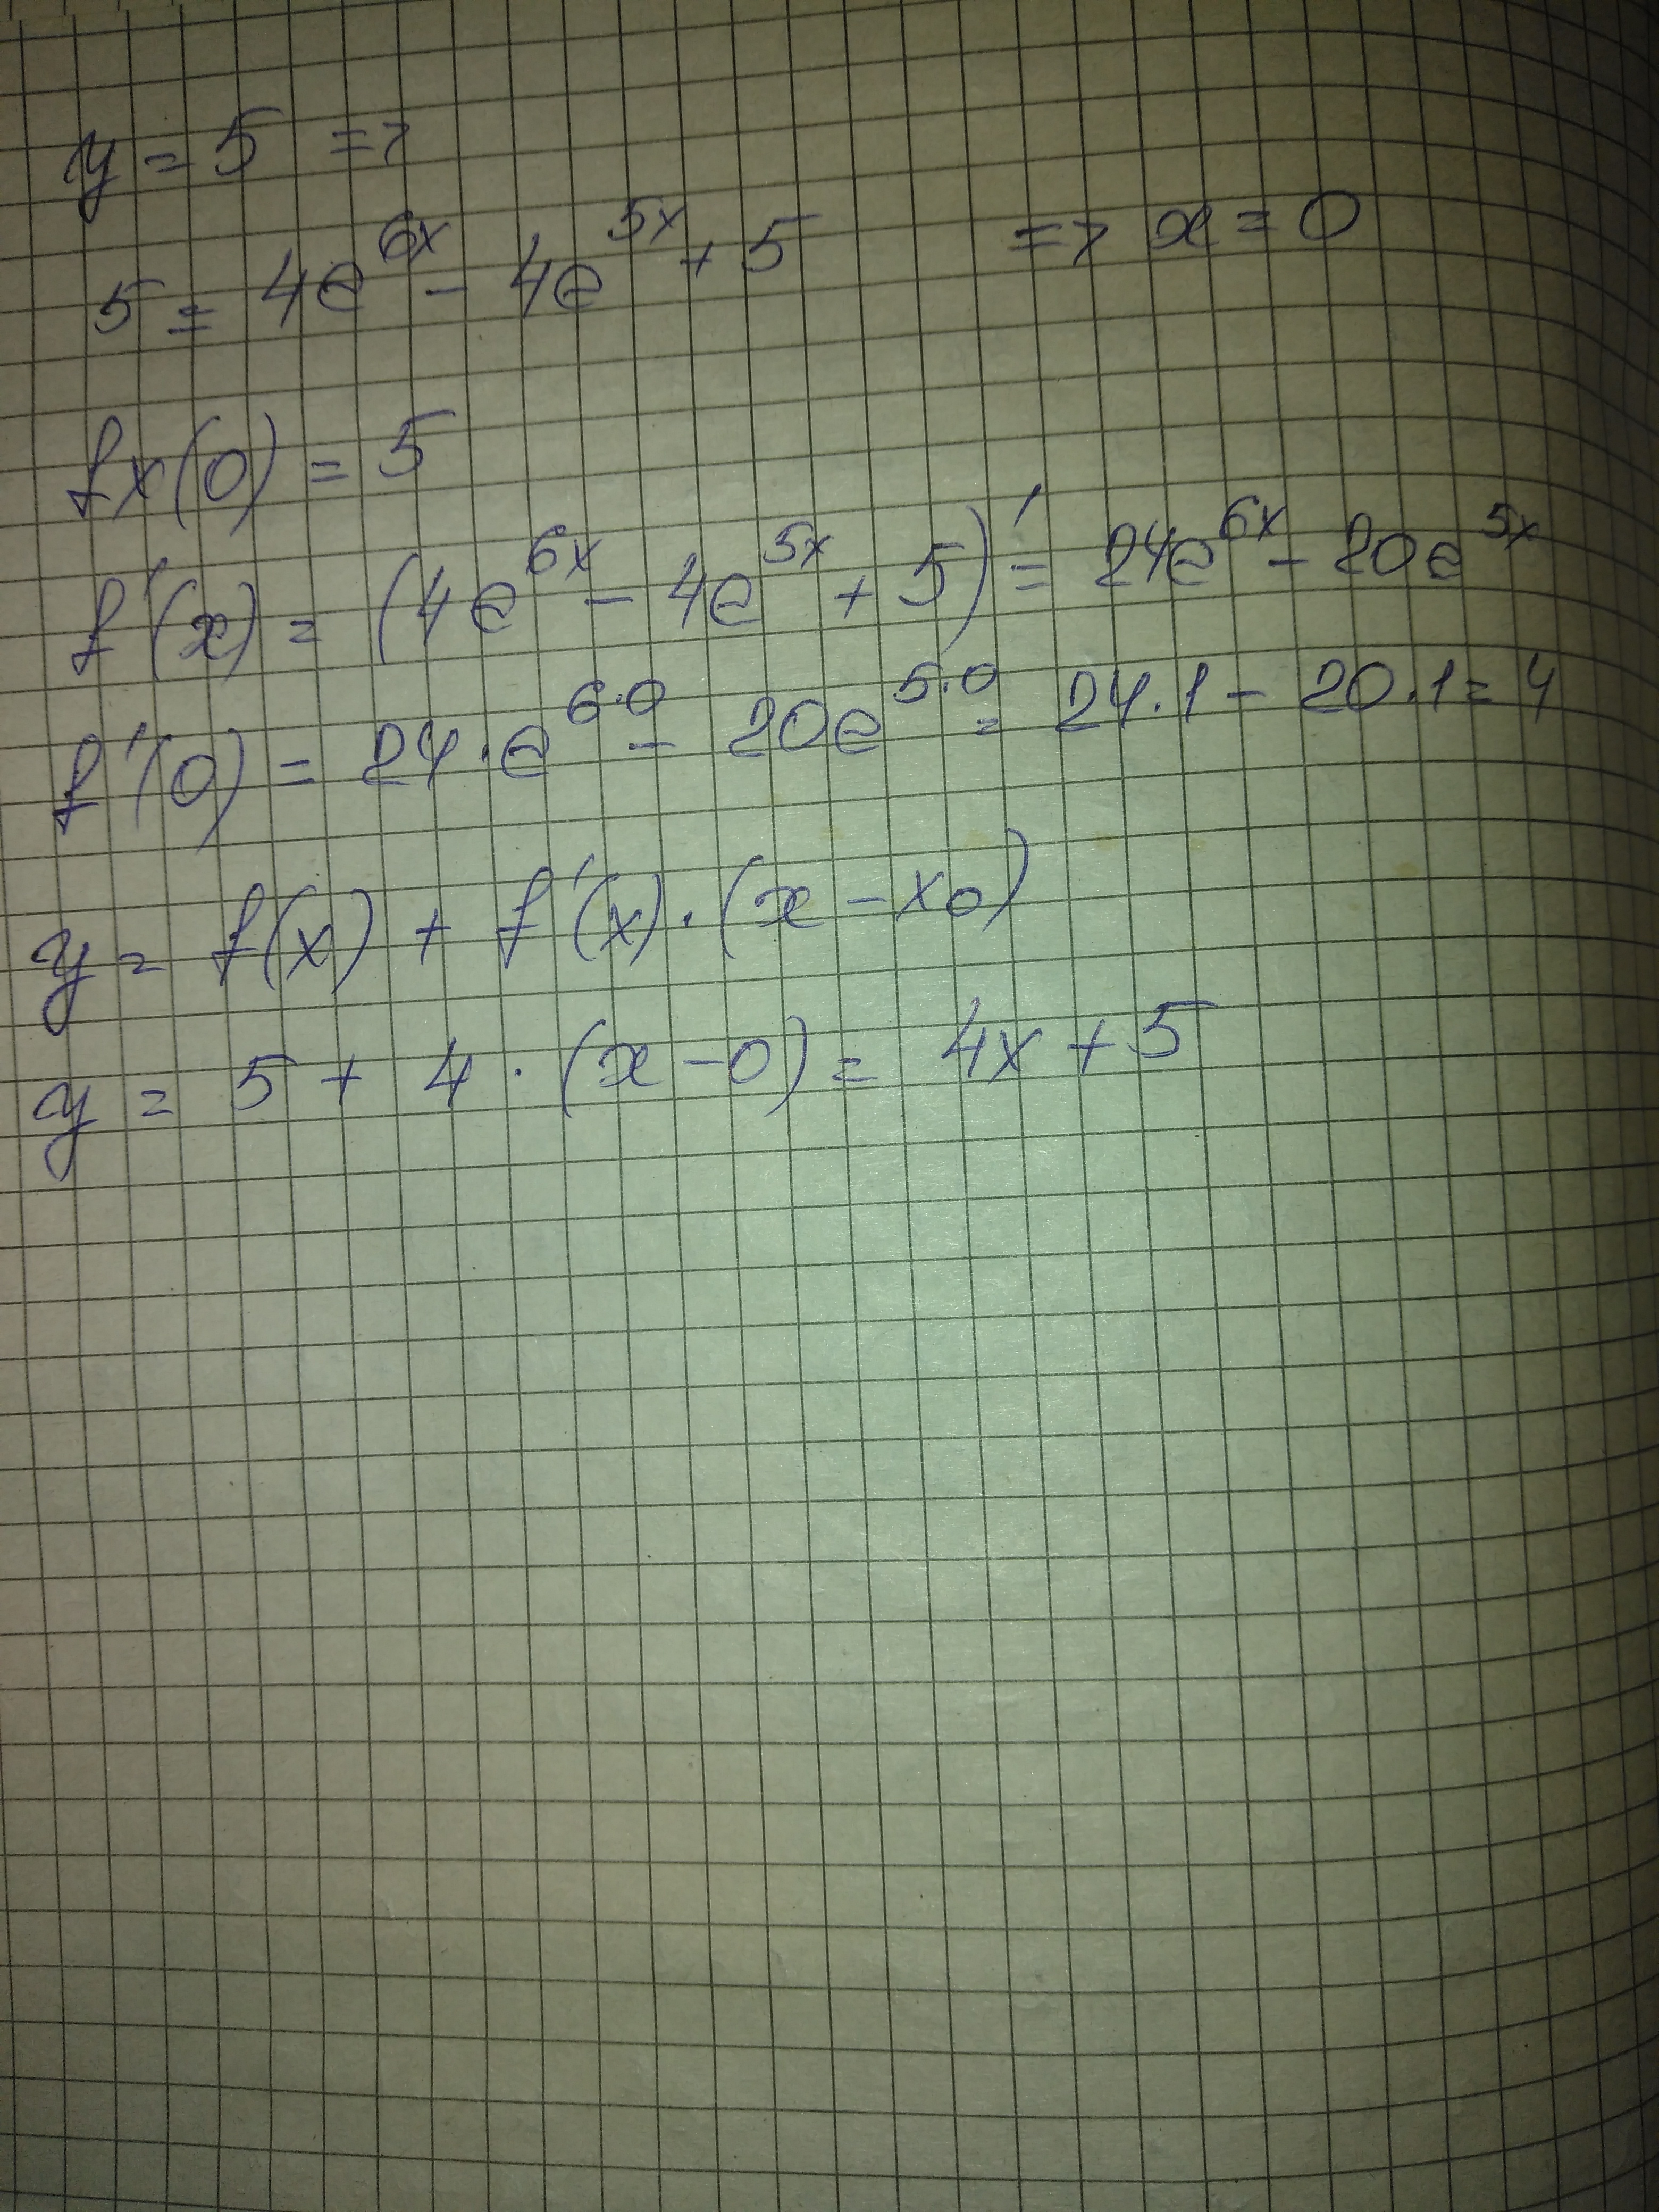 y = 5 =>
5 = 4e^{6x} - 4e^{5x} + 5 => x = 0
fx(0) = 5
f'(x) = (4e^{6x} - 4e^{5x} + 5)' = 24e^{6x} - 20e^{5x}
f'(0) = 24·e^{6·0} - 20e^{5·0} = 24·1 - 20·1 = 4
y = f(x) + f'(x)·(x - x0)
y = 5 + 4·(x - 0) = 4x + 5